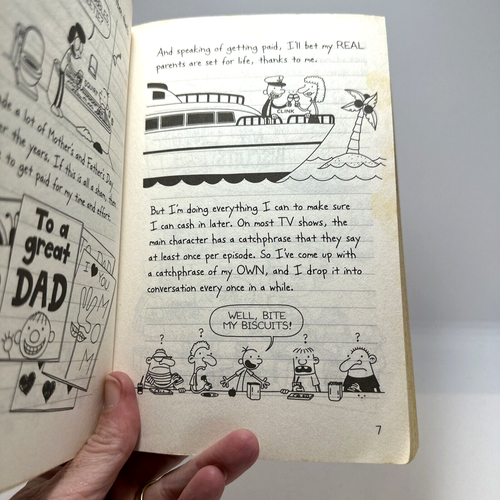 made a lot of Mother's and Father's Day
over the years. If this is all a sham, then
to get paid for my time and effort.
To a
great
DAD
I
YOU
M
O
M
And speaking of getting paid, I'll bet my REAL
parents are set for life, thanks to me.
CLINK
But I'm doing everything I can to make sure
I can cash in later. On most TV shows, the
main character has a catchphrase that they say
at least once per episode. So I've come up with
a catchphrase of my OWN, and I drop it into
conversation every once in a while.
WELL, BITE
MY BISCUITS!
? ? ? ?
7